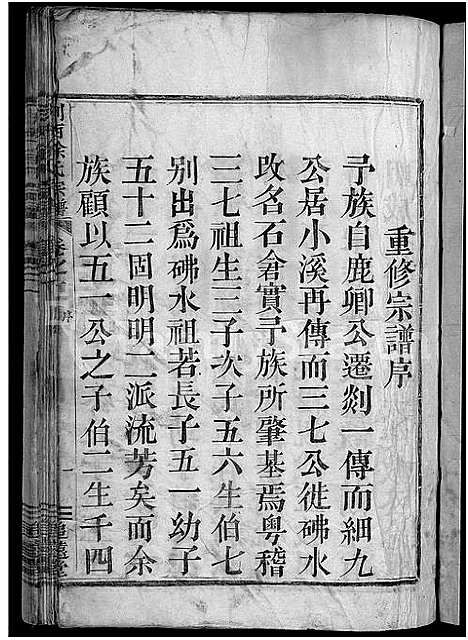 重修宗譜序
予族自鹿卿公遷剡一傳而細九
公居小溪再傳而三七公徙砩水
改名石倉實予族所肇基焉粵稽
三七祖生三子次子五六生伯七
别出爲砩水祖若長子五一幼子
五十二固明明二派流芳矣而余
族顧以五一公之子伯二生千四